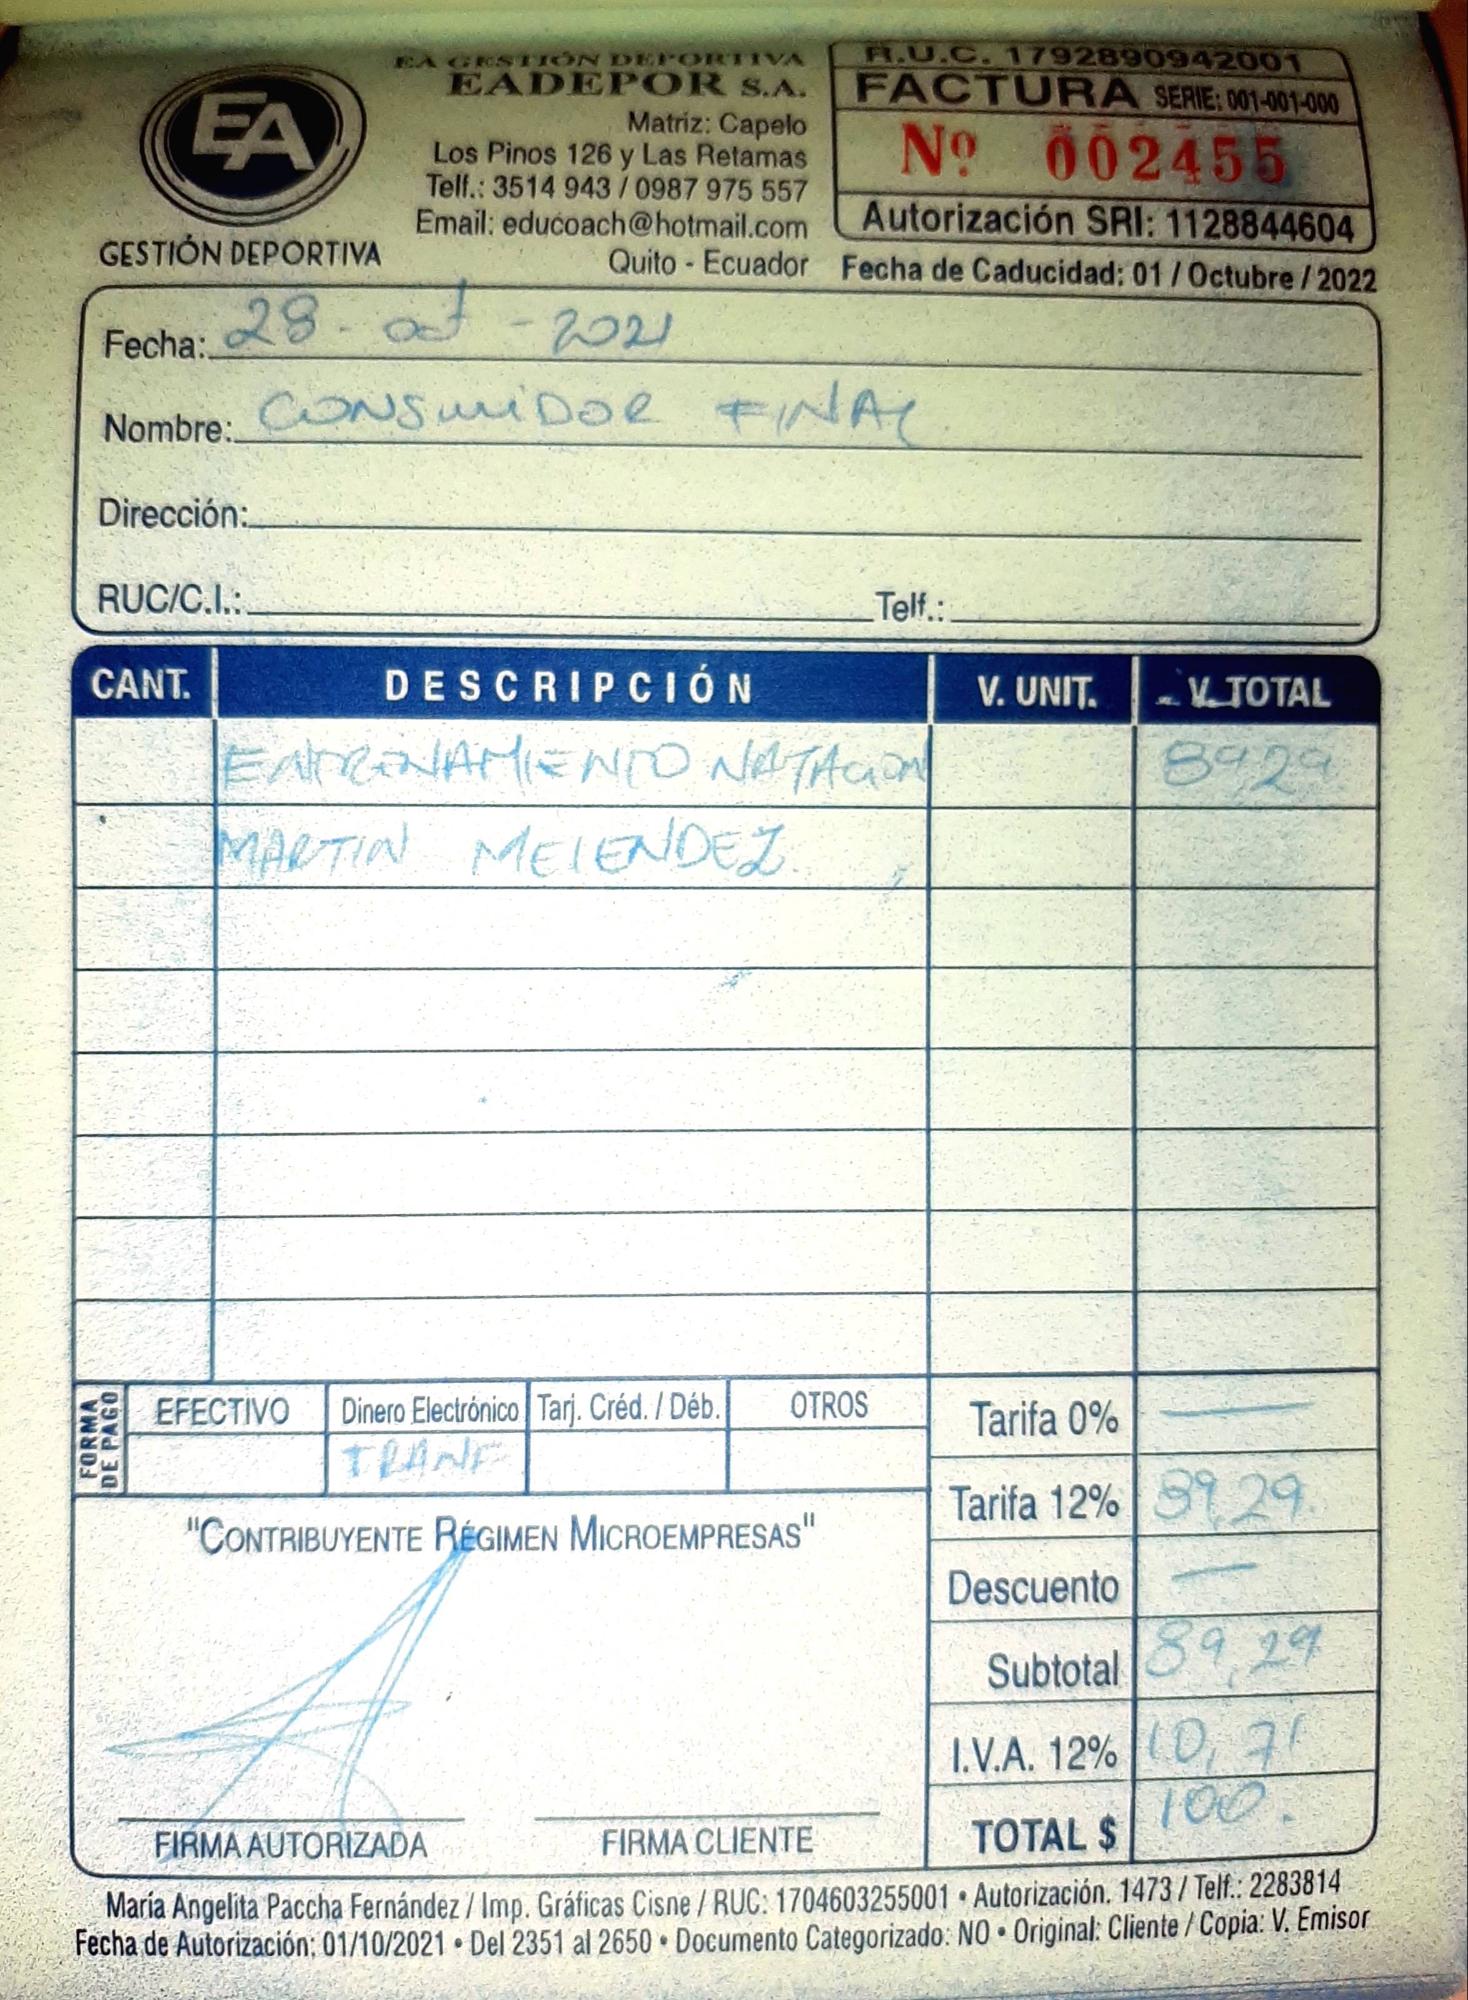 EA
GESTIÓN DEPORTIVA
EA GESTIÓN DEPORTIVA
EADEPOR S.A.
Matriz: Capelo
Los Pinos 126 y Las Retamas
Telf.: 3514 943 / 0987 975 557
Email: educoach@hotmail.com
Quito - Ecuador
R.U.C. 1792890942001
FACTURA SERIE: 001-001-000
Nº 002455
Autorización SRI: 1128844604
Fecha de Caducidad: 01 / Octubre / 2022
Fecha: 28 - oct - 2021
Nombre: CONSUMIDOR FINAL
Dirección:
RUC/C.I.: Telf.:
CANT. DESCRIPCIÓN V. UNIT. V. TOTAL
ENTRENAMIENTO NATACION 89,29
MARTIN MELENDEZ
FORMA DE PAGO
EFECTIVO Dinero Electrónico Tarj. Créd. / Déb. OTROS
TRANF
Tarifa 0% —
Tarifa 12% 89,29
Descuento —
Subtotal 89,29
I.V.A. 12% 10,71
TOTAL $ 100.
"CONTRIBUYENTE RÉGIMEN MICROEMPRESAS"
FIRMA AUTORIZADA FIRMA CLIENTE
María Angelita Paccha Fernández / Imp. Gráficas Cisne / RUC: 1704603255001 • Autorización. 1473 / Telf.: 2283814
Fecha de Autorización: 01/10/2021 • Del 2351 al 2650 • Documento Categorizado: NO • Original: Cliente / Copia: V. Emisor